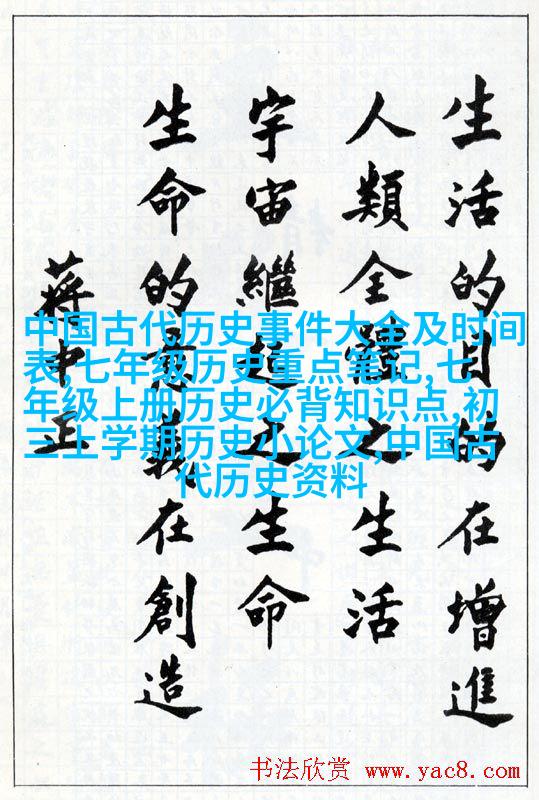 生活的目的在增進
人類全體之生活
宇宙繼起之生命
生命的意義在創造
蔣中正
中国古代历史事件大全及时间
表,七年级历史重点笔记,七
年级上册历史必背知识点,初
三上学期历史小论文,中国古
代历史资料
书法欣赏 www.yac8.com